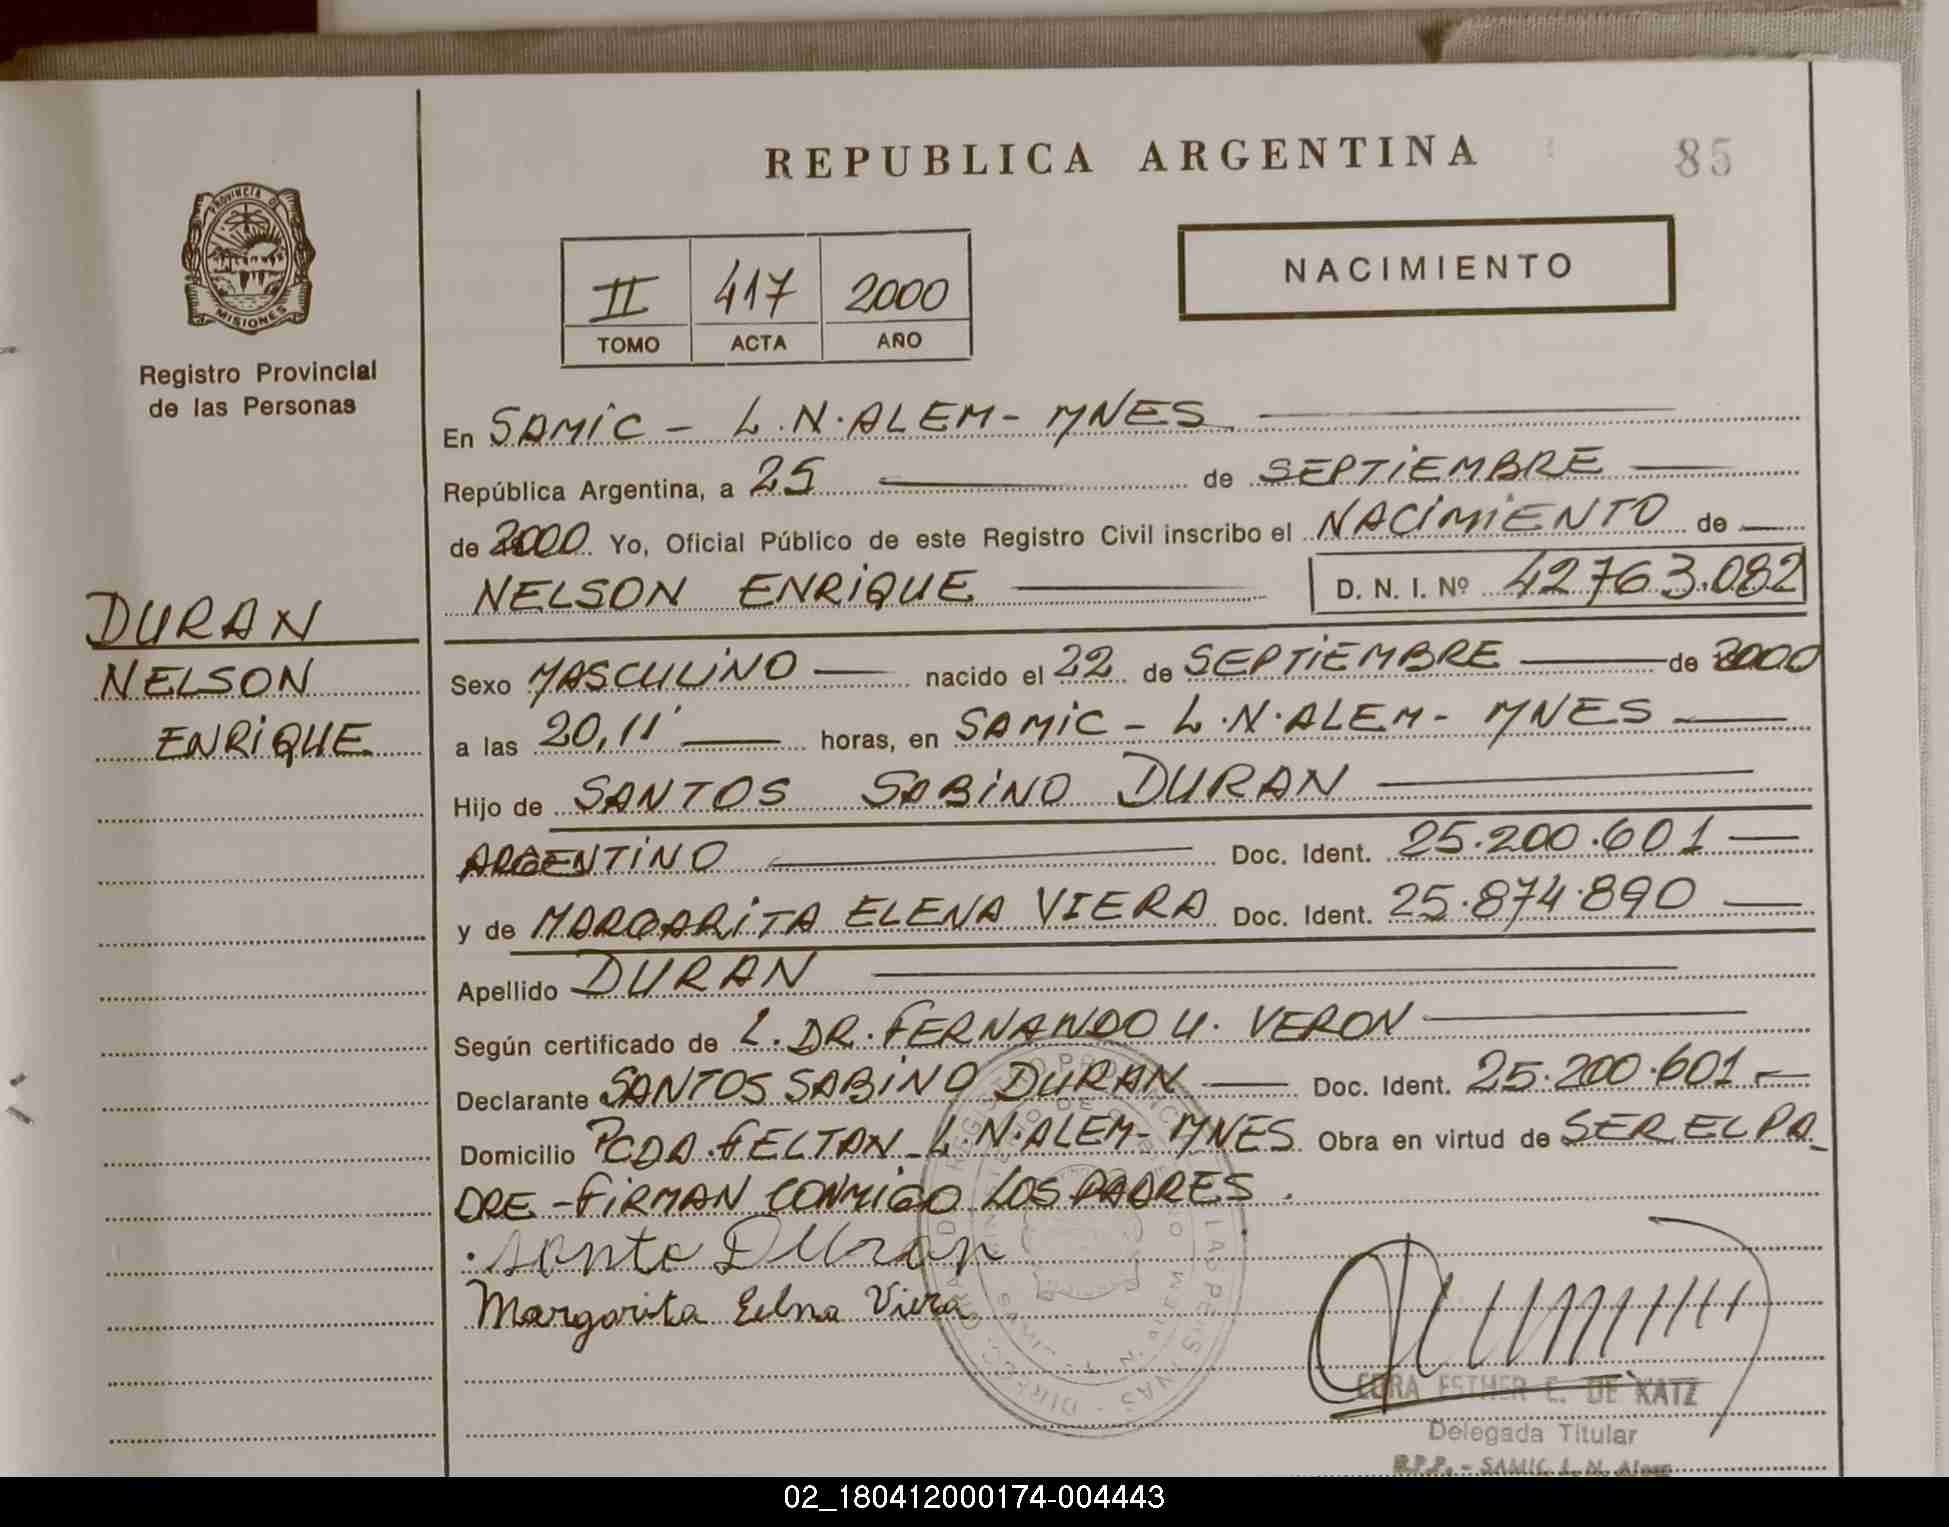 REPUBLICA ARGENTINA
85
PROVINCIA D
MISIONES
Registro Provincial
de las Personas
II 417 2000
TOMO ACTA AÑO
NACIMIENTO
En SAMIC - L.N.ALEM- MNES
República Argentina, a 25 de SEPTIEMBRE
de 2000 Yo, Oficial Público de este Registro Civil inscribo el NACIMIENTO de
NELSON ENRIQUE D. N. I. Nº 42763.082
DURAN
NELSON
ENRIQUE
Sexo MASCULINO nacido el 22 de SEPTIEMBRE de 2000
a las 20,11' horas, en SAMIC - L.N.ALEM- MNES
Hijo de SANTOS SABINO DURAN
ARGENTINO Doc. Ident. 25.200.601
y de MARGARITA ELENA VIERA Doc. Ident. 25.874.890
Apellido DURAN
Según certificado de L. DR. FERNANDO U. VERON
Declarante SANTOS SABINO DURAN Doc. Ident. 25.200.601
Domicilio PCDA. FELTAN - L.N.ALEM- MNES Obra en virtud de SER EL PA-
DRE - FIRMAN CONMIGO LOS PADRES.
Santo Duran
Margarita Eelna Viera
ESTHER E. DE KATZ
Delegada Titular
R.P.P. - SAMIC L. N. Alem
02_180412000174-004443